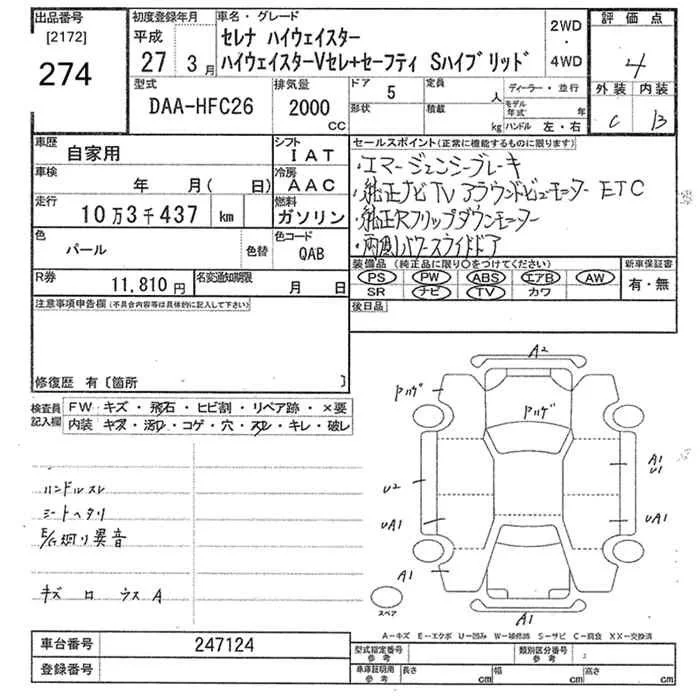 出品番号
[2172]
274
初度登録年月
平成
27 3月
車名・グレード
セレナ ハイウェイスター
ハイウェイスターVセレ+セーフティ Sハイブリッド
2WD
・
4WD
評価点
4
外装 内装
C B
型式
DAA-HFC26
排気量
2000
CC
ドア
5
形状
定員
人
積載
kg
ディーラー・並行
モデル年式 年
ハンドル 左・右
車歴
自家用
シフト
IAT
車検
年 月( 日)
冷房
AAC
走行
10万3千437 km
燃料
ガソリン
色
パール
色替
色コード
QAB
R券
11,810円
名変通知期限
月 日
セールスポイント(正常に機能するものに限ります)
・エマージェンシーブレーキ
・純正ナビTVアラウンドビューモニター ETC
・純正Rフリップダウンモニター
・両側パワースライドドア
装備品 (純正品に限り○をつけてください)
PS PW ABS エアB AW
SR ナビ TV カワ
新車保証書
有・無
後日品
注意事項申告欄(不具合内容等は具体的に記入して下さい)
修復歴 有〔箇所 〕
検査員記入欄
FW キズ・飛石・ヒビ割・リペア跡・×要
内装 キズ・汚れ・コゲ・穴・スレ・キレ・破レ
ハンドルスレ
シートヘタリ
E/G廻り異音
キズ ロ ウス A
A2
Pハゲ
Pハゲ
A1
U1
U2
UA1
UA1
A1
スペア
A1
A-キズ E-エクボ U-凹み W-補修跡 S-サビ C-腐食 XX-交換済
車台番号
247124
登録番号
型式指定番号
参考
類別区分番号
参考
車庫証明用
参考
長さ cm
幅 cm
高さ cm